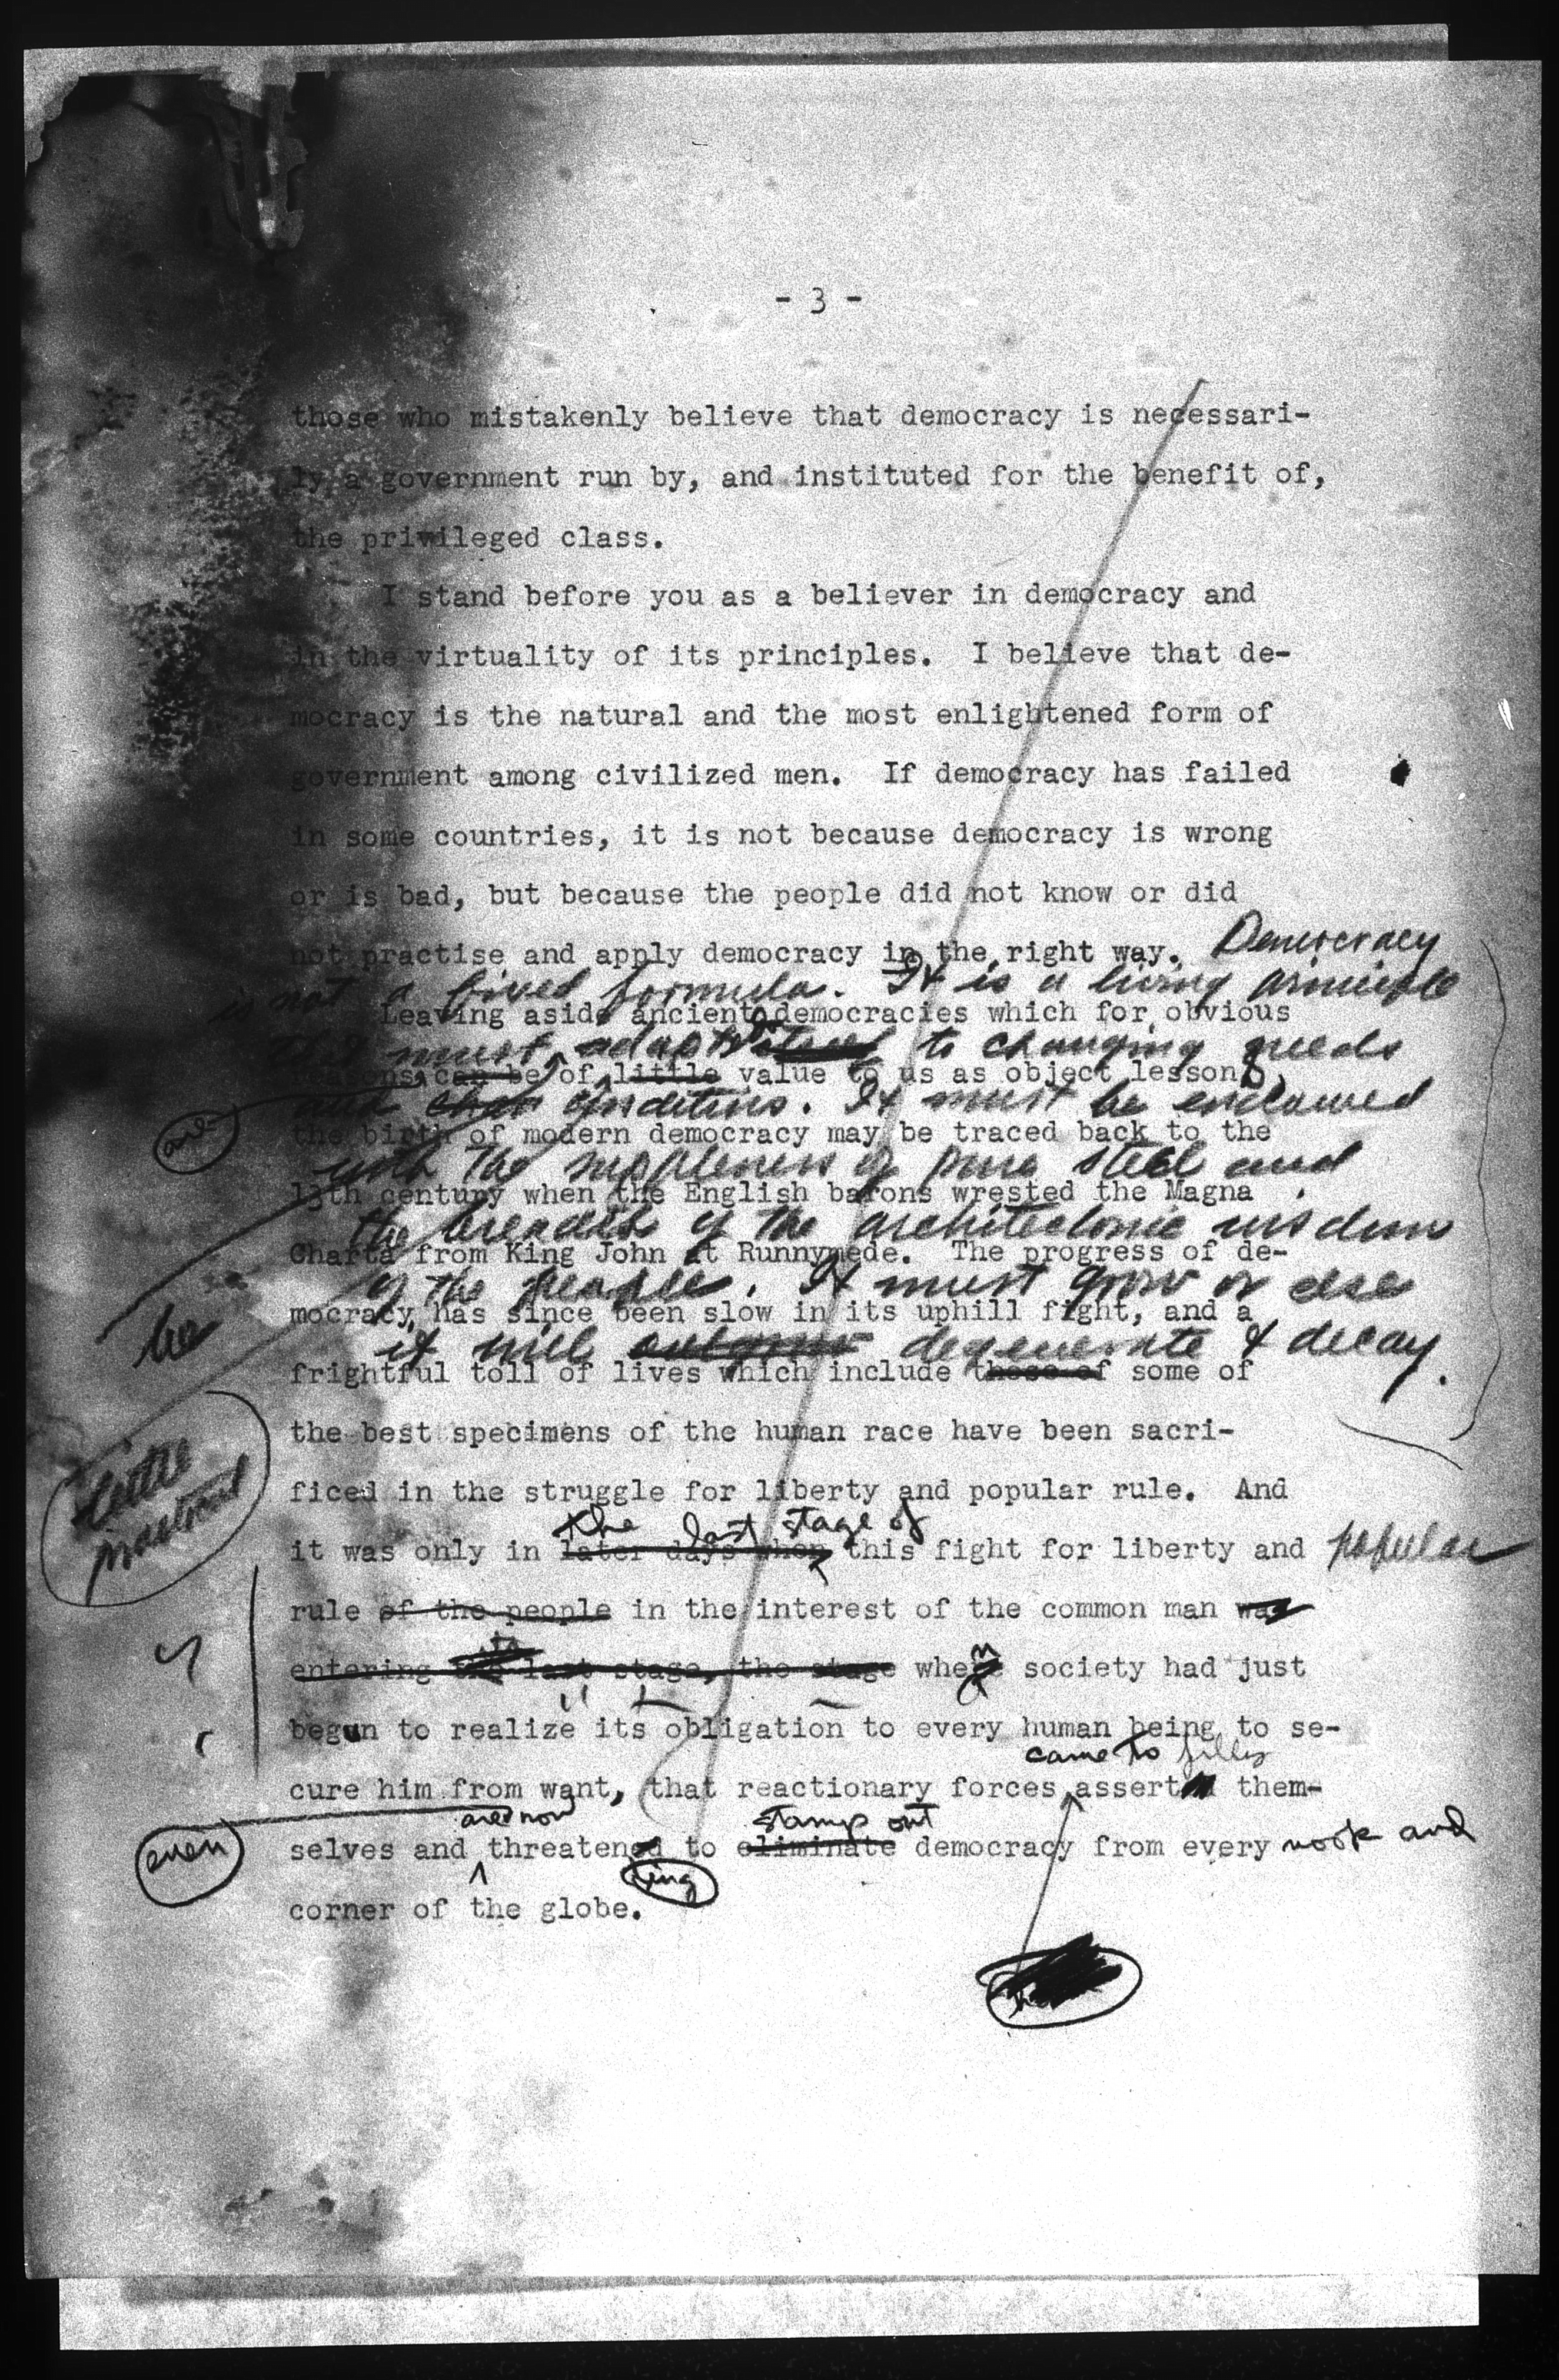 - 3 -
those who mistakenly believe that democracy is necessari-
ly a government run by, and instituted for the benefit of,
the privileged class.
I stand before you as a believer in democracy and
in the virtuality of its principles. I believe that de-
mocracy is the natural and the most enlightened form of
government among civilized men. If democracy has failed
in some countries, it is not because democracy is wrong
or is bad, but because the people did not know or did
not practise and apply democracy in the right way. Democracy
is not a fixed formula. It is a living principle
Leaving aside ancient democracies which for obvious
must adapt itself to changing needs
reasons can be of little value to us as object lessons,
and conditions. It must be endowed
are
the birth of modern democracy may be traced back to the
with the suppleness of pure steel and
13th century when the English barons wrested the Magna
the breadth of the architectonic wisdom
Charta from King John at Runnymede. The progress of de-
of the people. It must grow or else
mocracy, has since been slow in its uphill fight, and a
it will outgrow degenerate & decay.
frightful toll of lives which include those of some of
the best specimens of the human race have been sacri-
little
practical
ficed in the struggle for liberty and popular rule. And
the last stage of
it was only in later days when this fight for liberty and popular
rule of the people in the interest of the common man was
entering the last stage, the stage when society had just
begun to realize its obligation to every human being to se-
came to fully
cure him from want, that reactionary forces asserted them-
are now stamp out
even
selves and threatened to eliminate democracy from every nook and
ing
corner of the globe.